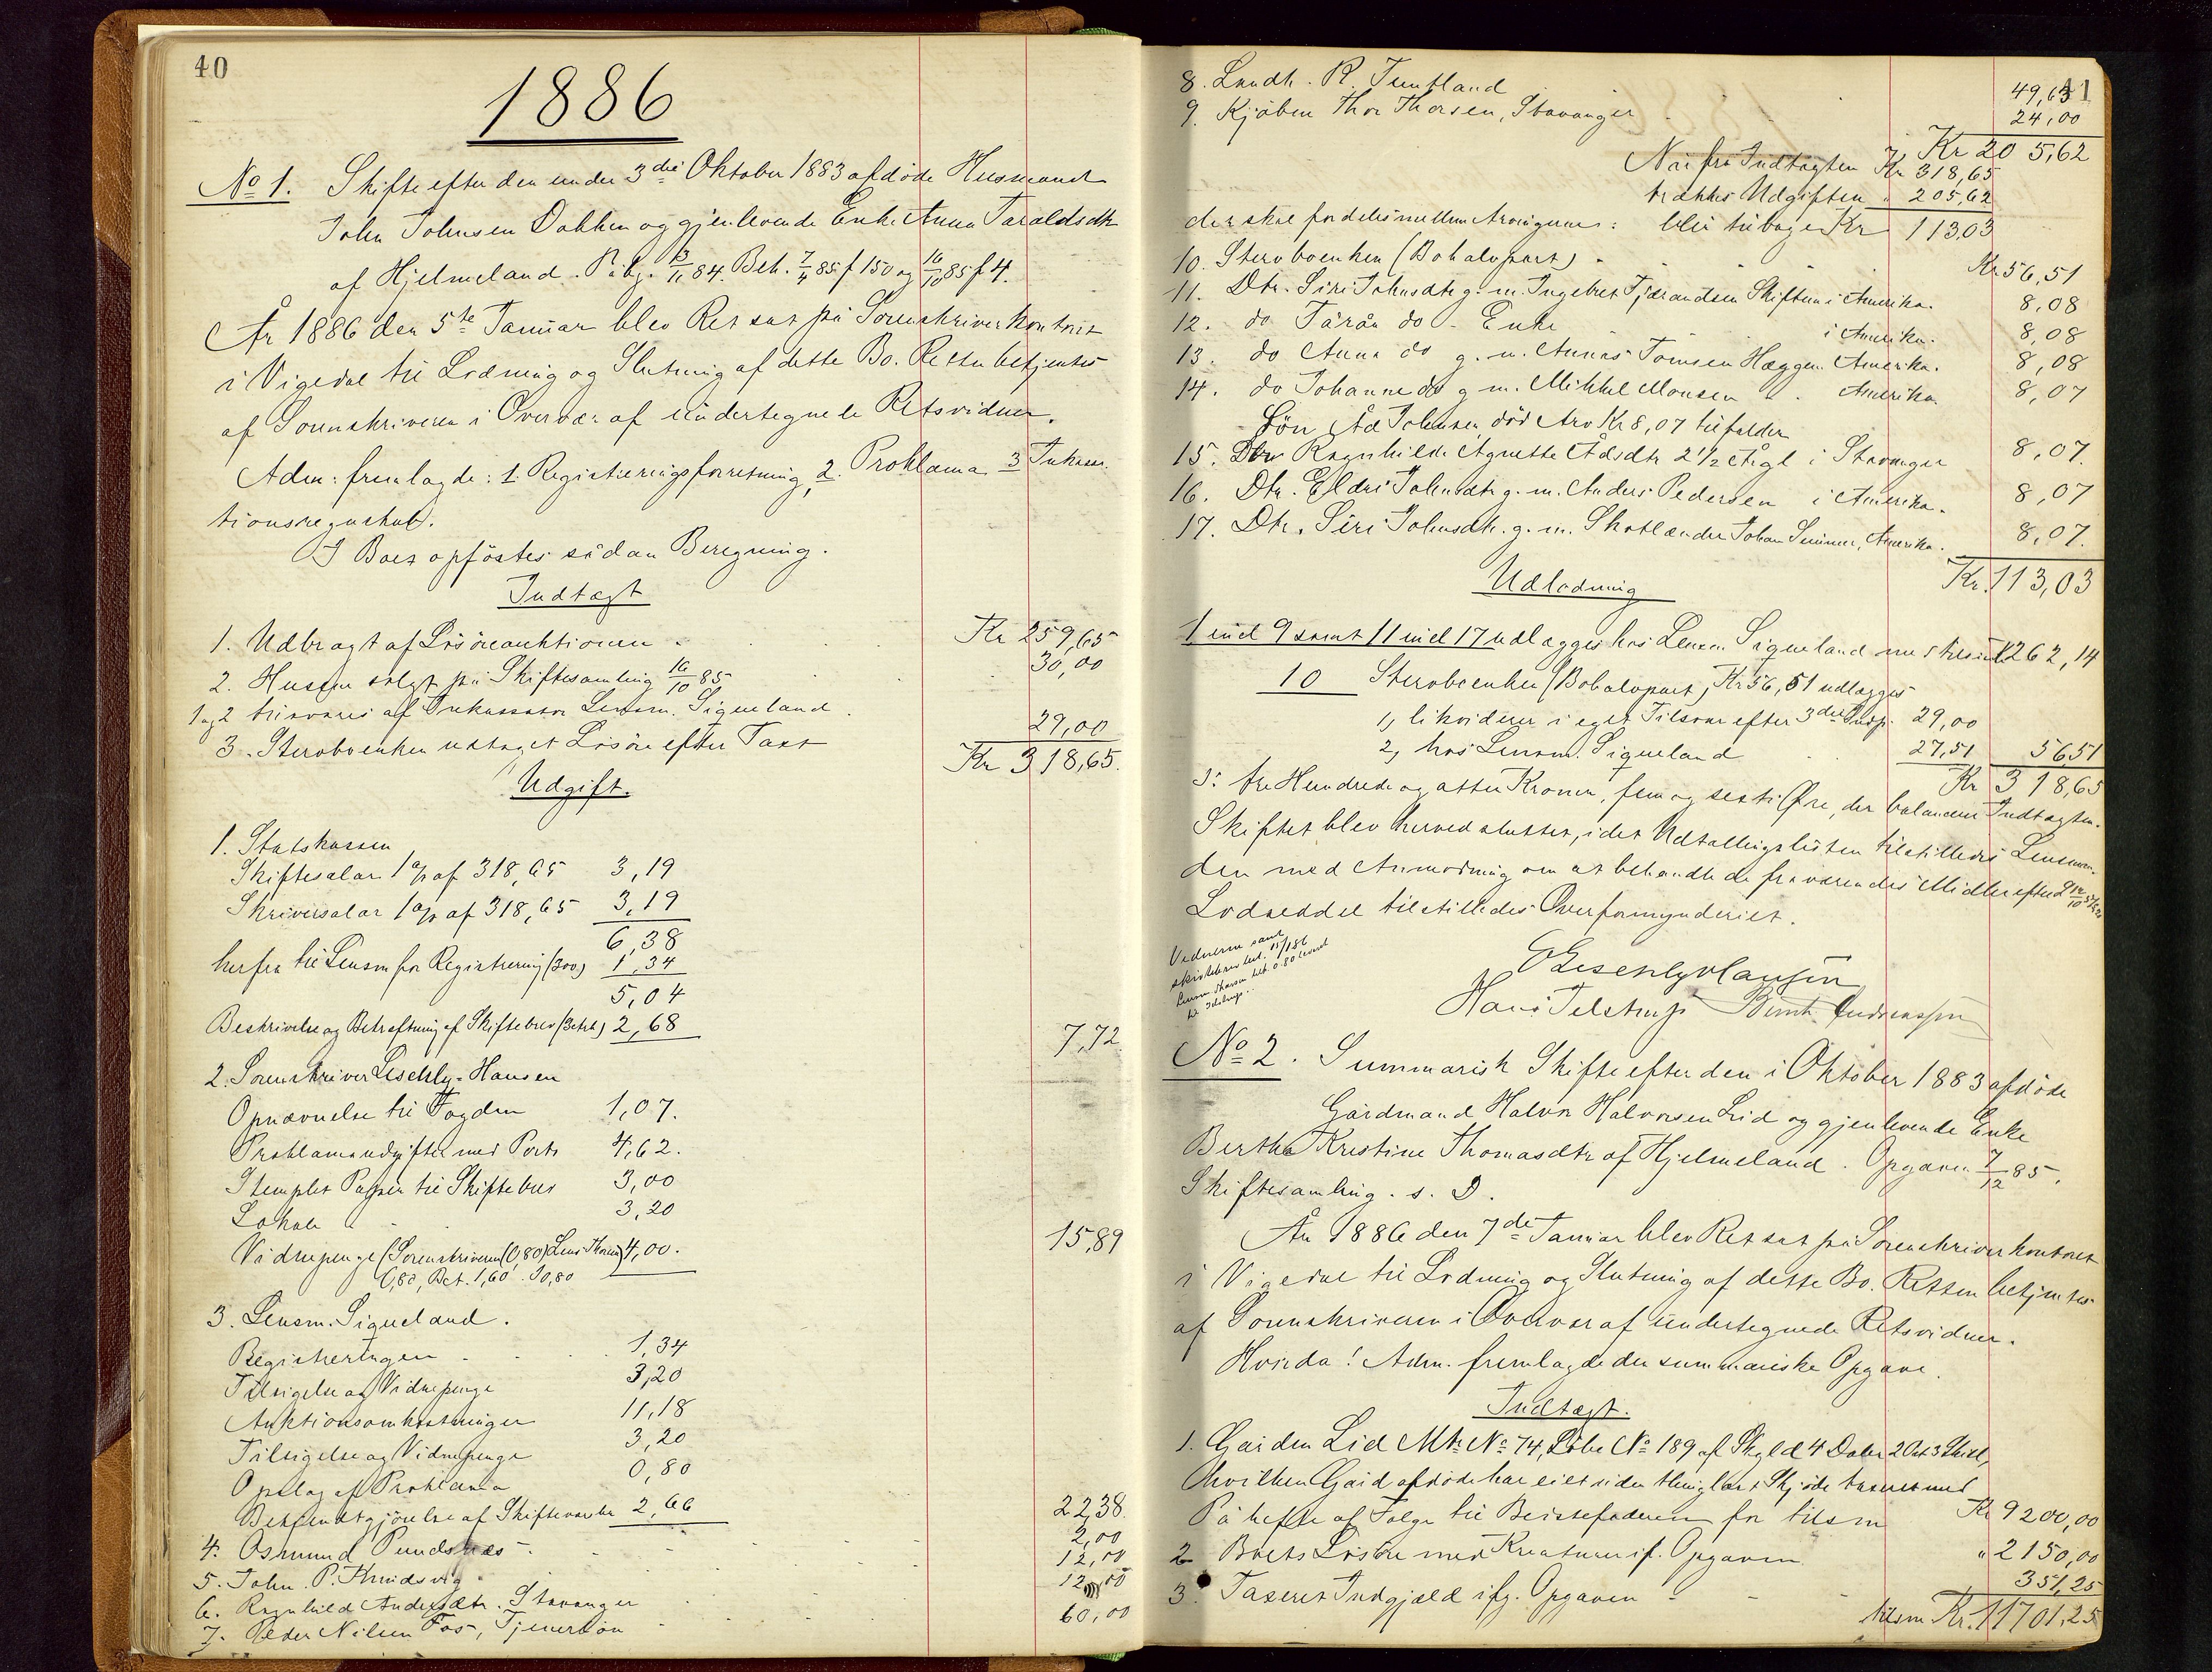 40
1886
No 1. Skifte efter den under 3die Oktober 1883 afdöde Husmand
John Johnsen Dokken og gjenlevende Enke Anna Taraldsdtr
af Hjelmeland. Påbg. 13/11 84. Beh. 7/4 85 f 150 og 16/10 85 f 4.
År 1886 den 5te Januar blev Ret sat på Sorenskriverkontoret
i Vigedal til Lodning og Slutning af dette Bo. Retten betjentes
af Sorenskriveren i Overvær af undertegnede Retsvidner.
Adm: fremlagde: 1. Registreringsforretning, 2. Proklama 3 Inkassa-
tionsregnskab.
I Boet opföstes sådan Beregning.
Indtægt
1. Udbragt af Lösöreauktionen Kr 259,65
2. Husene solgt på Skiftesamling 16/10 85 30,00
1 og 2 tilsvares af Inkassator Lensm. Sigveland.
3. Sterboenken udtaget Lösöre efter Taxt 29,00
Kr 318,65.
Udgift.
1. Statskassen
Skiftesalar 1% af 318,65 3,19
Skriversalar 1% af 318,65 3,19
6,38
herfra til Lensm for Registrering (300) 1,34
5,04
Beskrivelse og Bekræftning af Skiftebrev 2,68
7,72.
2. Sorenskriver Eeschly-Hansen
Opnævnelse til Fogden 1,07.
Proklamaudgifter med Porto 4,62.
Stemplet Papir til Skiftebrev 3,00
Lokale 3,20
Vidnepenge (Sorenskriveren 0,80) Lens Thorsen 4,00.
0,80, Bet. 1,60 0,80
15,89
3. Lensm. Sigveland.
Registreringen 1,34
Tilsigelse og Vidnepenge 3,20
Auktionsomkostninger 11,18
Tilsigelse og Vidnepenge 3,20
Opslag af Proklama 0,80
Bekjendtgjörelse af Skiftevarsler 2,66
22,38.
4. Osmund Pundsnæs 2,00
5. John P. Knudsvig 12,00
6. Ragnhild Andersdtr. Stavanger 12,00
7. Peder Nilsen Fos, Tjenerlön 60,00
41
8. Landh. R. Tuntland 49,63
9. Kjöbm Thor Thorsen, Stavanger 24,00
Kr 205,62
Når fra Indtægten Kr 318,65
trækkes Udgiften " 205,62
der skal fordeles mellem Arvingerne: blir tilbage Kr 113,03
10. Sterboenken (Bohalvpart) Kr 56,51
11. Dtr. Siri Johnsdtr g. m. Ingebret Tjerandsen Skiftun i Amerika. 8,08
12. do Tårån do - Enke i Amerika. 8,08
13. do Anna do g. m. Annas Tomsen Hæggen Amerika. 8,08
14. do Johanne do g m. Mikkel Monsen Amerika. 8,07
Sön Åd Johnsen död Arv Kr 8,07 tilfalder
15. Dtr Ragnhilde Agnette Ådsdtr 2 1/2 År gl i Stavanger 8,07.
16. Dtr. Eldri Johnsdtr g. m. Anders Pedersen i Amerika. 8,07
17. Dtr. Siri Johnsdtr. g. m. Skotlænder Johan Amerika. 8,07.
Kr. 113,03
Udlodning
1 incl 9 samt 11 incl 17 udlægges hos Lensm Sigveland Kr 262,14
10 Sterboenken (Bohalvpart) Kr 56,51 udlægges
1, likviderer i eget Tilsvar efter 3die Indp. 29,00
2, hos Lensm. Sigveland 27,51 56,51
Kr 318,65
3: tre Hundrede og atten Kroner, fem og sexti Øre, der balancerer Indtægten.
Skiftet blev herved sluttet, idet Udtællingslisten tilstilledes Lensman-
den med Anmodning om at behandle de fraværendes Midler efter
Lodseddel tilstilledes Overformynderiet.
Vidnerne samt
skiftebrev
Eeschly Hansen
Hans Jelstrup Bernt Andreassen
No 2. Summarisk Skifte efter den i Oktober 1883 afdöde
Gårdmand Halvor Halvorsen Lid og gjenlevende Enke
Bertha Kristine Thomasdtr af Hjelmeland. Opgaven 7/12 85.
Skiftesamling. s. D.
År 1886 den 7de Januar blev Ret sat på Sorenskriverkontoret
i Vigedal til Lodning og Slutning af dette Bo. Retten betjentes
af Sorenskriveren i Overvær af undertegnede Retsvidner.
Hvorda! Adm. fremlagde den summariske Opgave.
Indtægt.
1. Gården Lid Mtr No 74, Löbe No 189 af Skyld 4 Daler 2 Ort 3 Skil,
hvilken Gård afdöde har eiet uden thinglæst Skjöde taxeret med Kr 9200,00
På hefte af Folge til Beistefaderen for tilsm
2 Boets Lösöre med Kreaturer if. Opgaven " 2150,00
3. Taxeret Indgjæld ifg. Opgaven 351,25
tilsm Kr. 11701,25